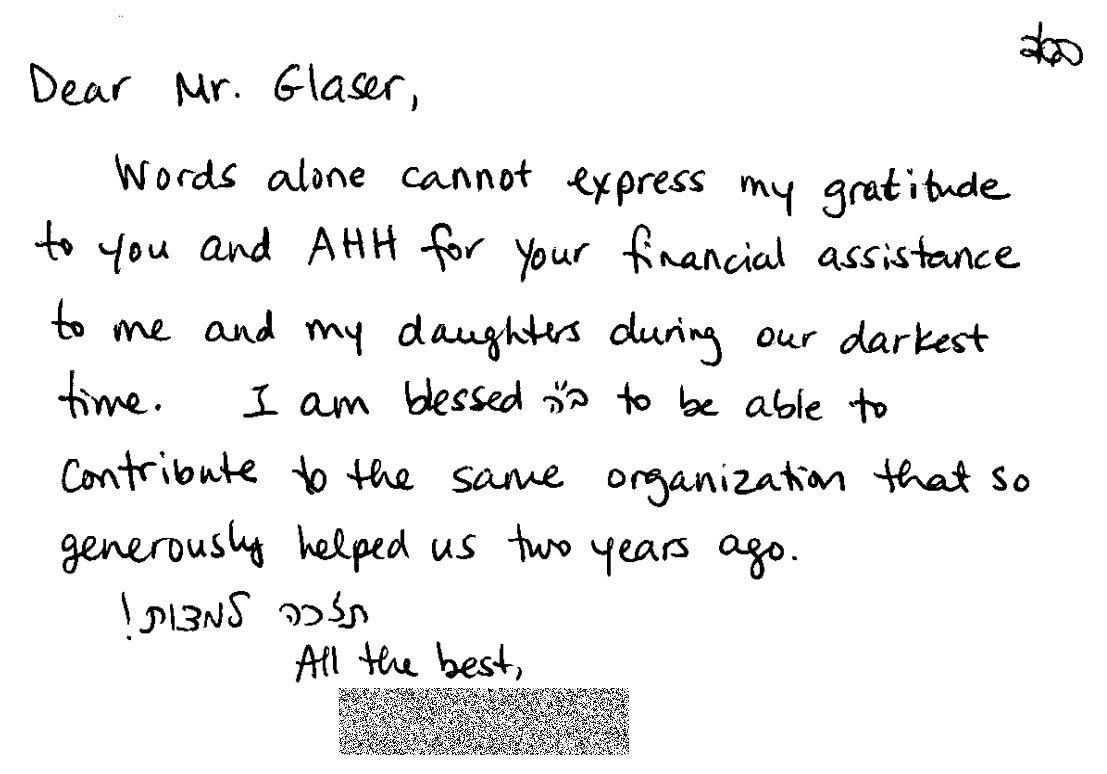 בס"ד
Dear Mr. Glaser,
Words alone cannot express my gratitude
to you and AHH for your financial assistance
to me and my daughters during our darkest
time. I am blessed ב"ה to be able to
contribute to the same organization that so
generously helped us two years ago.
תזכה למצות!
All the best,